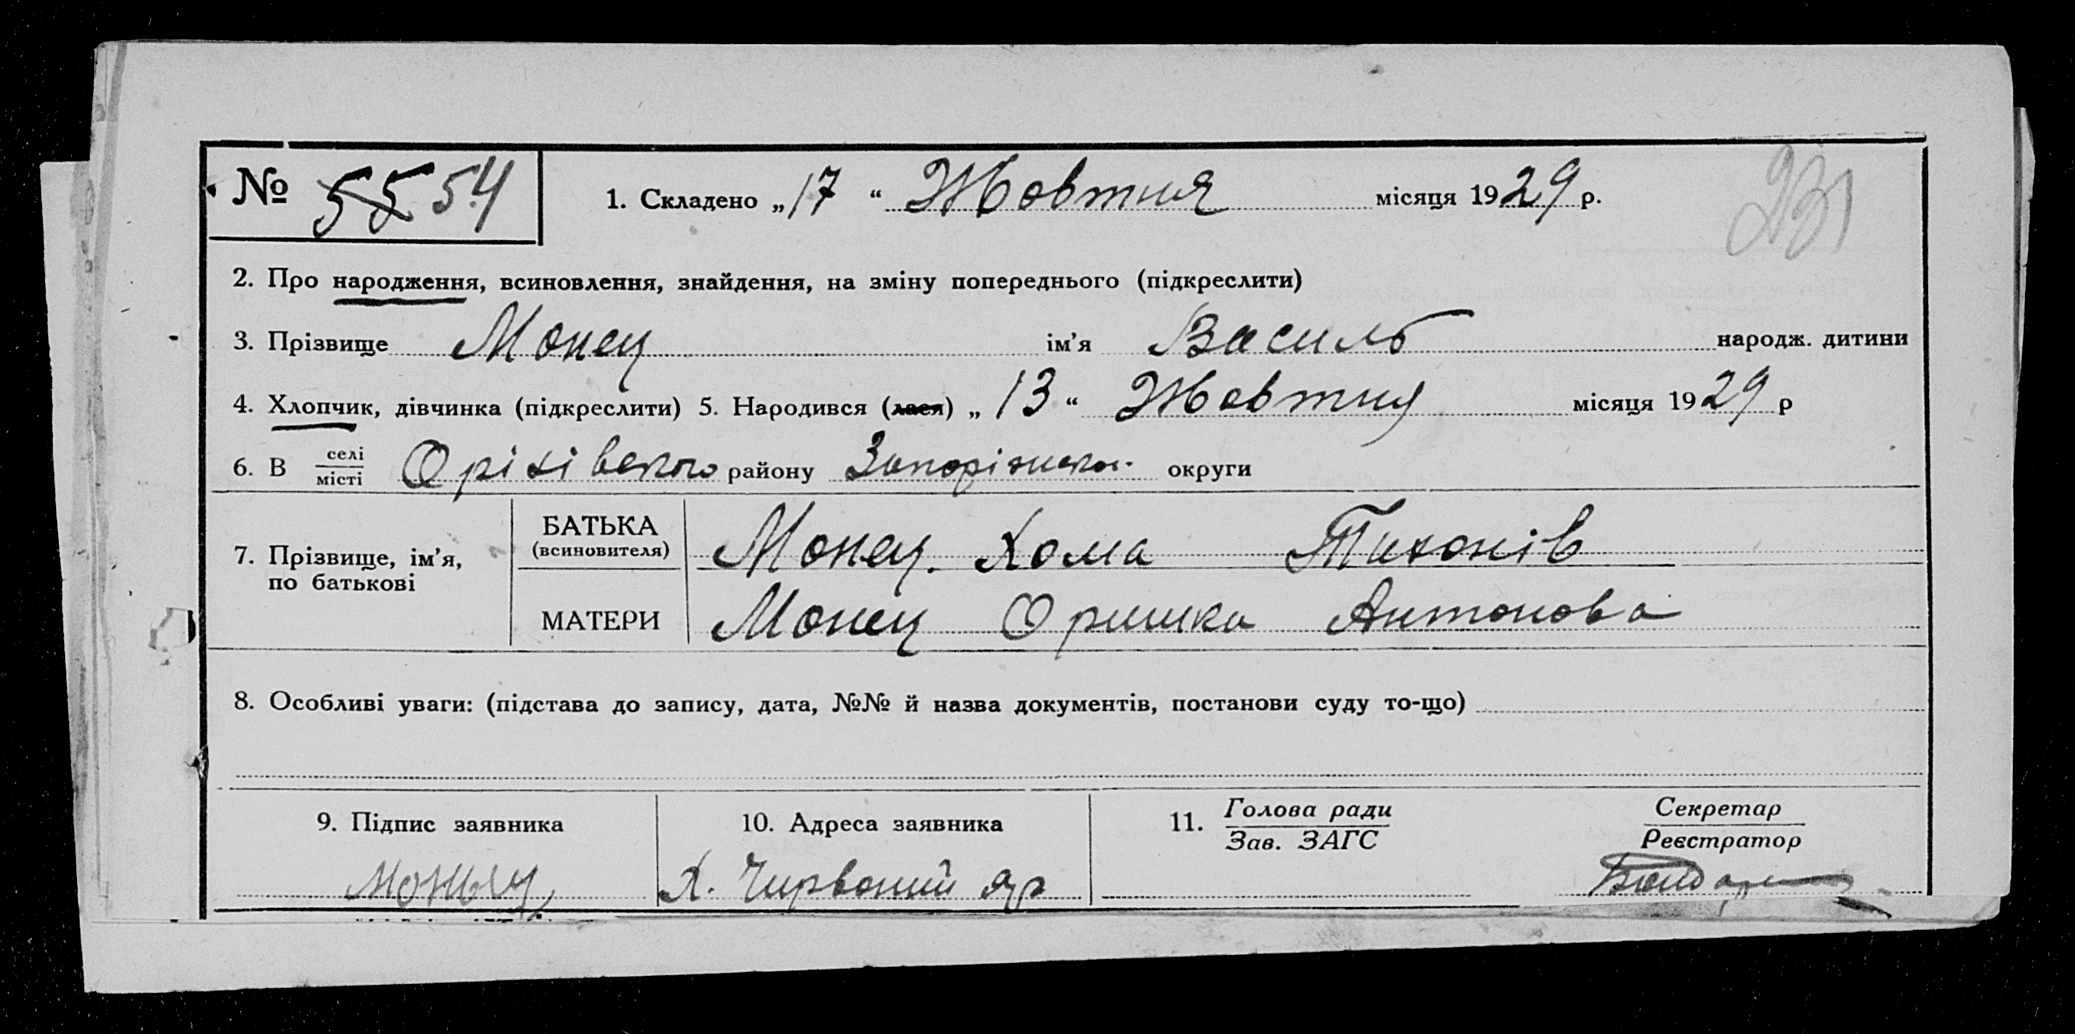 № 55 54 1. Складено „17“ Жовтня місяця 1929 р. 231
2. Про народження, всиновлення, знайдення, на зміну попереднього (підкреслити)
3. Прізвище Монец ім’я Василь народж. дитини
4. Хлопчик, дівчинка (підкреслити) 5. Народився (лася) „13“ Жовтня місяця 1929 р
6. В селі/місті Оріхівського району Запорізької округи
7. Прізвище, ім’я, по батькові
БАТЬКА (всиновителя) Монец. Хома Тихонів
МАТЕРИ Монец Оришка Антонова
8. Особливі уваги: (підстава до запису, дата, №№ й назва документів, постанови суду то-що)
9. Підпис заявника 10. Адреса заявника 11. Голова ради/Зав. ЗАГС Секретар/Реєстратор
Х. Чирвоний яр